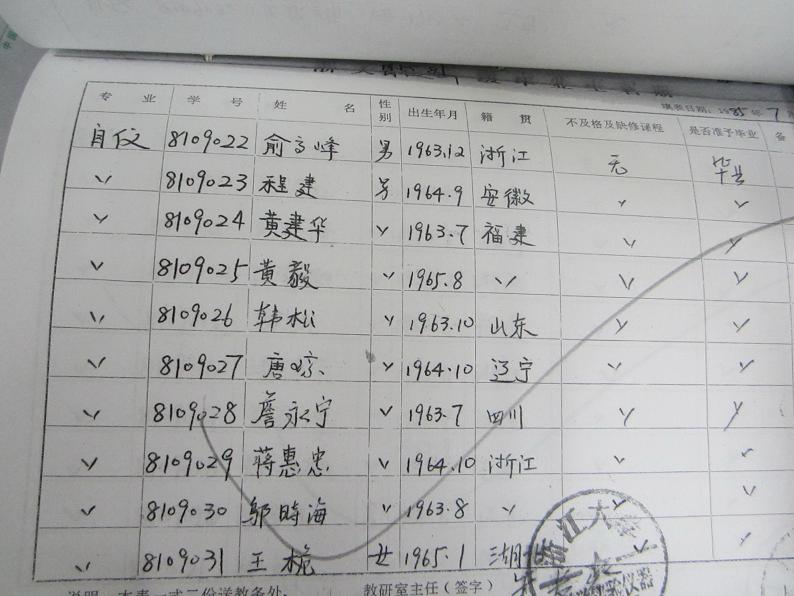 填表日期：1985年7
专 业 学 号 姓 名 性别 出生年月 籍 贯 不及格及缺修课程 是否准予毕业 备
自仪 8109022 俞高峰 男 1963.12 浙江 无 毕业
〃 8109023 程建 男 1964.9 安徽 〃 〃
〃 8109024 黄建华 〃 1963.7 福建 〃 〃
〃 8109025 黄毅 〃 1965.8 〃 〃 〃
〃 8109026 韩松 〃 1963.10 山东 〃 〃
〃 8109027 唐 〃 1964.10 辽宁 〃 〃
〃 8109028 詹永宁 〃 1963.7 四川 〃 〃
〃 8109029 蒋惠忠 〃 1964.10 浙江 〃 〃
〃 8109030 邬時海 〃 1963.8 〃 〃 〃
〃 8109031 王桅 女 1965.1 湖北 〃 〃
说明：本表一式二份送教务处。 教研室主任（签字）
江大